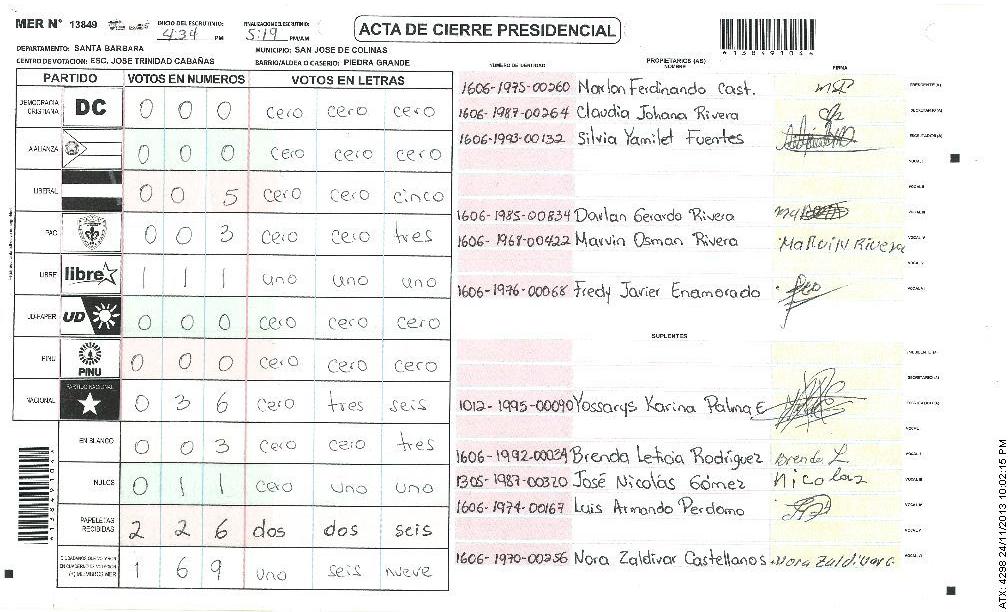 MER N° 13849
INICIO DEL ESCRUTINIO: 4:34 PM
FINALIZACION ESCRUTINIO: 5:19 PM/AM
ACTA DE CIERRE PRESIDENCIAL
DEPARTAMENTO: SANTA BARBARA
MUNICIPIO: SAN JOSE DE COLINAS
CENTRO DE VOTACION: ESC. JOSE TRINIDAD CABAÑAS
BARRIO/ALDEA O CASERIO: PIEDRA GRANDE
PARTIDO VOTOS EN NUMEROS VOTOS EN LETRAS
DEMOCRACIA CRISTIANA DC 0 0 0 cero cero cero
AALIANZA 0 0 0 cero cero cero
LIBERAL 0 0 5 cero cero cinco
PAC 0 0 3 cero cero tres
LIBRE libre 1 1 1 uno uno uno
UD-FAPER UD 0 0 0 cero cero cero
PINU PINU 0 0 0 cero cero cero
NACIONAL PARTIDO NACIONAL 0 3 6 cero tres seis
EN BLANCO 0 0 3 cero cero tres
NULOS 0 1 1 cero uno uno
PAPELETAS RECIBIDAS 2 2 6 dos dos seis
CIUDADANOS QUE VOTARON EN CUADERNO DE VOTACION (+) MIEMBROS MER 1 6 9 uno seis nueve
NUMERO DE IDENTIDAD
PROPIETARIOS (AS)
NOMBRE
FIRMA
1606-1975-00260 Marlon Ferdinando Cast. PRESIDENTE (A)
1606-1987-00264 Claudia Johana Rivera SECRETARIO (A)
1606-1993-00132 Silvia Yamilet Fuentes ESCRUTADOR (A)
VOCAL I
VOCAL II
1606-1985-00834 Darlan Gerardo Rivera VOCAL III
1606-1968-00422 Marvin Osman Rivera Marvin Rivera VOCAL IV
VOCAL V
1606-1976-00068 Fredy Javier Enamorado VOCAL VI
SUPLENTES
PRESIDENTE (A)
SECRETARIO (A)
1012-1995-00090 Yossarys Karina Palma E ESCRUTADOR (A)
VOCAL I
1606-1992-00034 Brenda Leticia Rodríguez Brenda L VOCAL II
1305-1987-00320 José Nicolas Gómez Nicolaz VOCAL III
1606-1974-00167 Luis Armando Perdomo VOCAL IV
VOCAL V
1606-1970-00256 Nora Zaldivar Castellanos Nora Zaldivar C VOCAL VI
6138491044
ATX: 4298 24/11/2013 10:02:15 PM